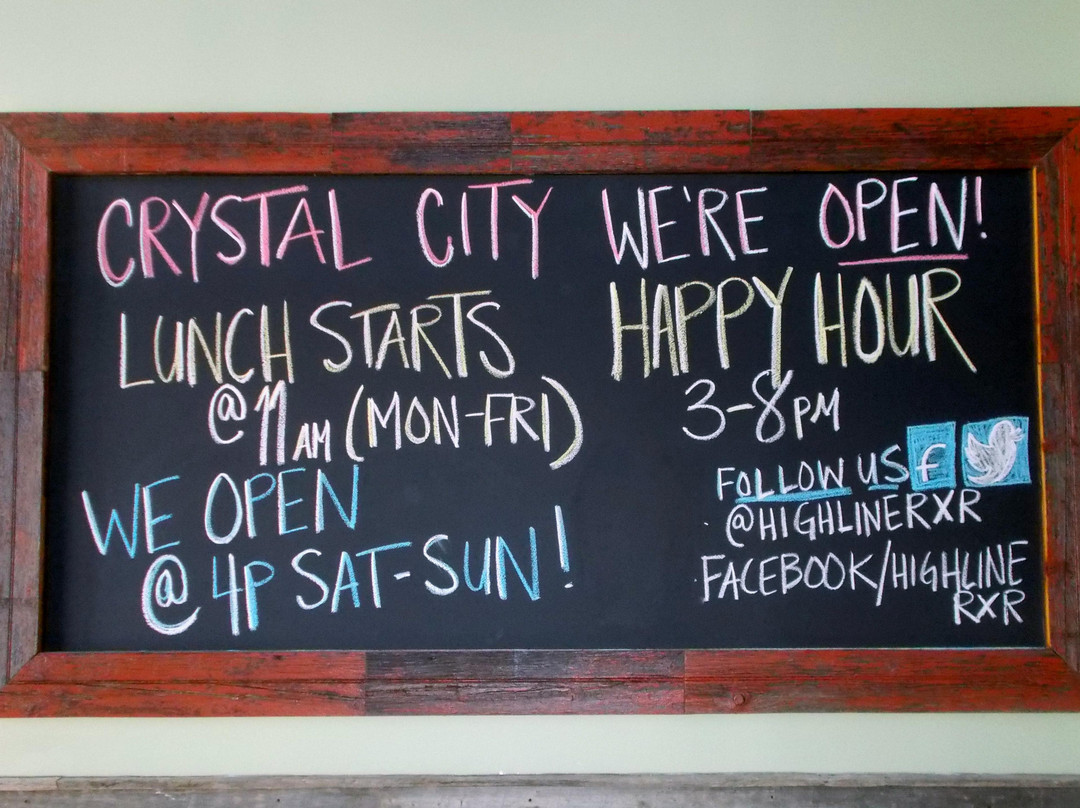 CRYSTAL CITY WE'RE OPEN!
LUNCH STARTS
@11AM (MON-FRI)
WE OPEN
@ 4P SAT-SUN!
HAPPY HOUR
3-8PM
FOLLOW US f
@HIGHLINERXR
FACEBOOK/HIGHLINE
RXR